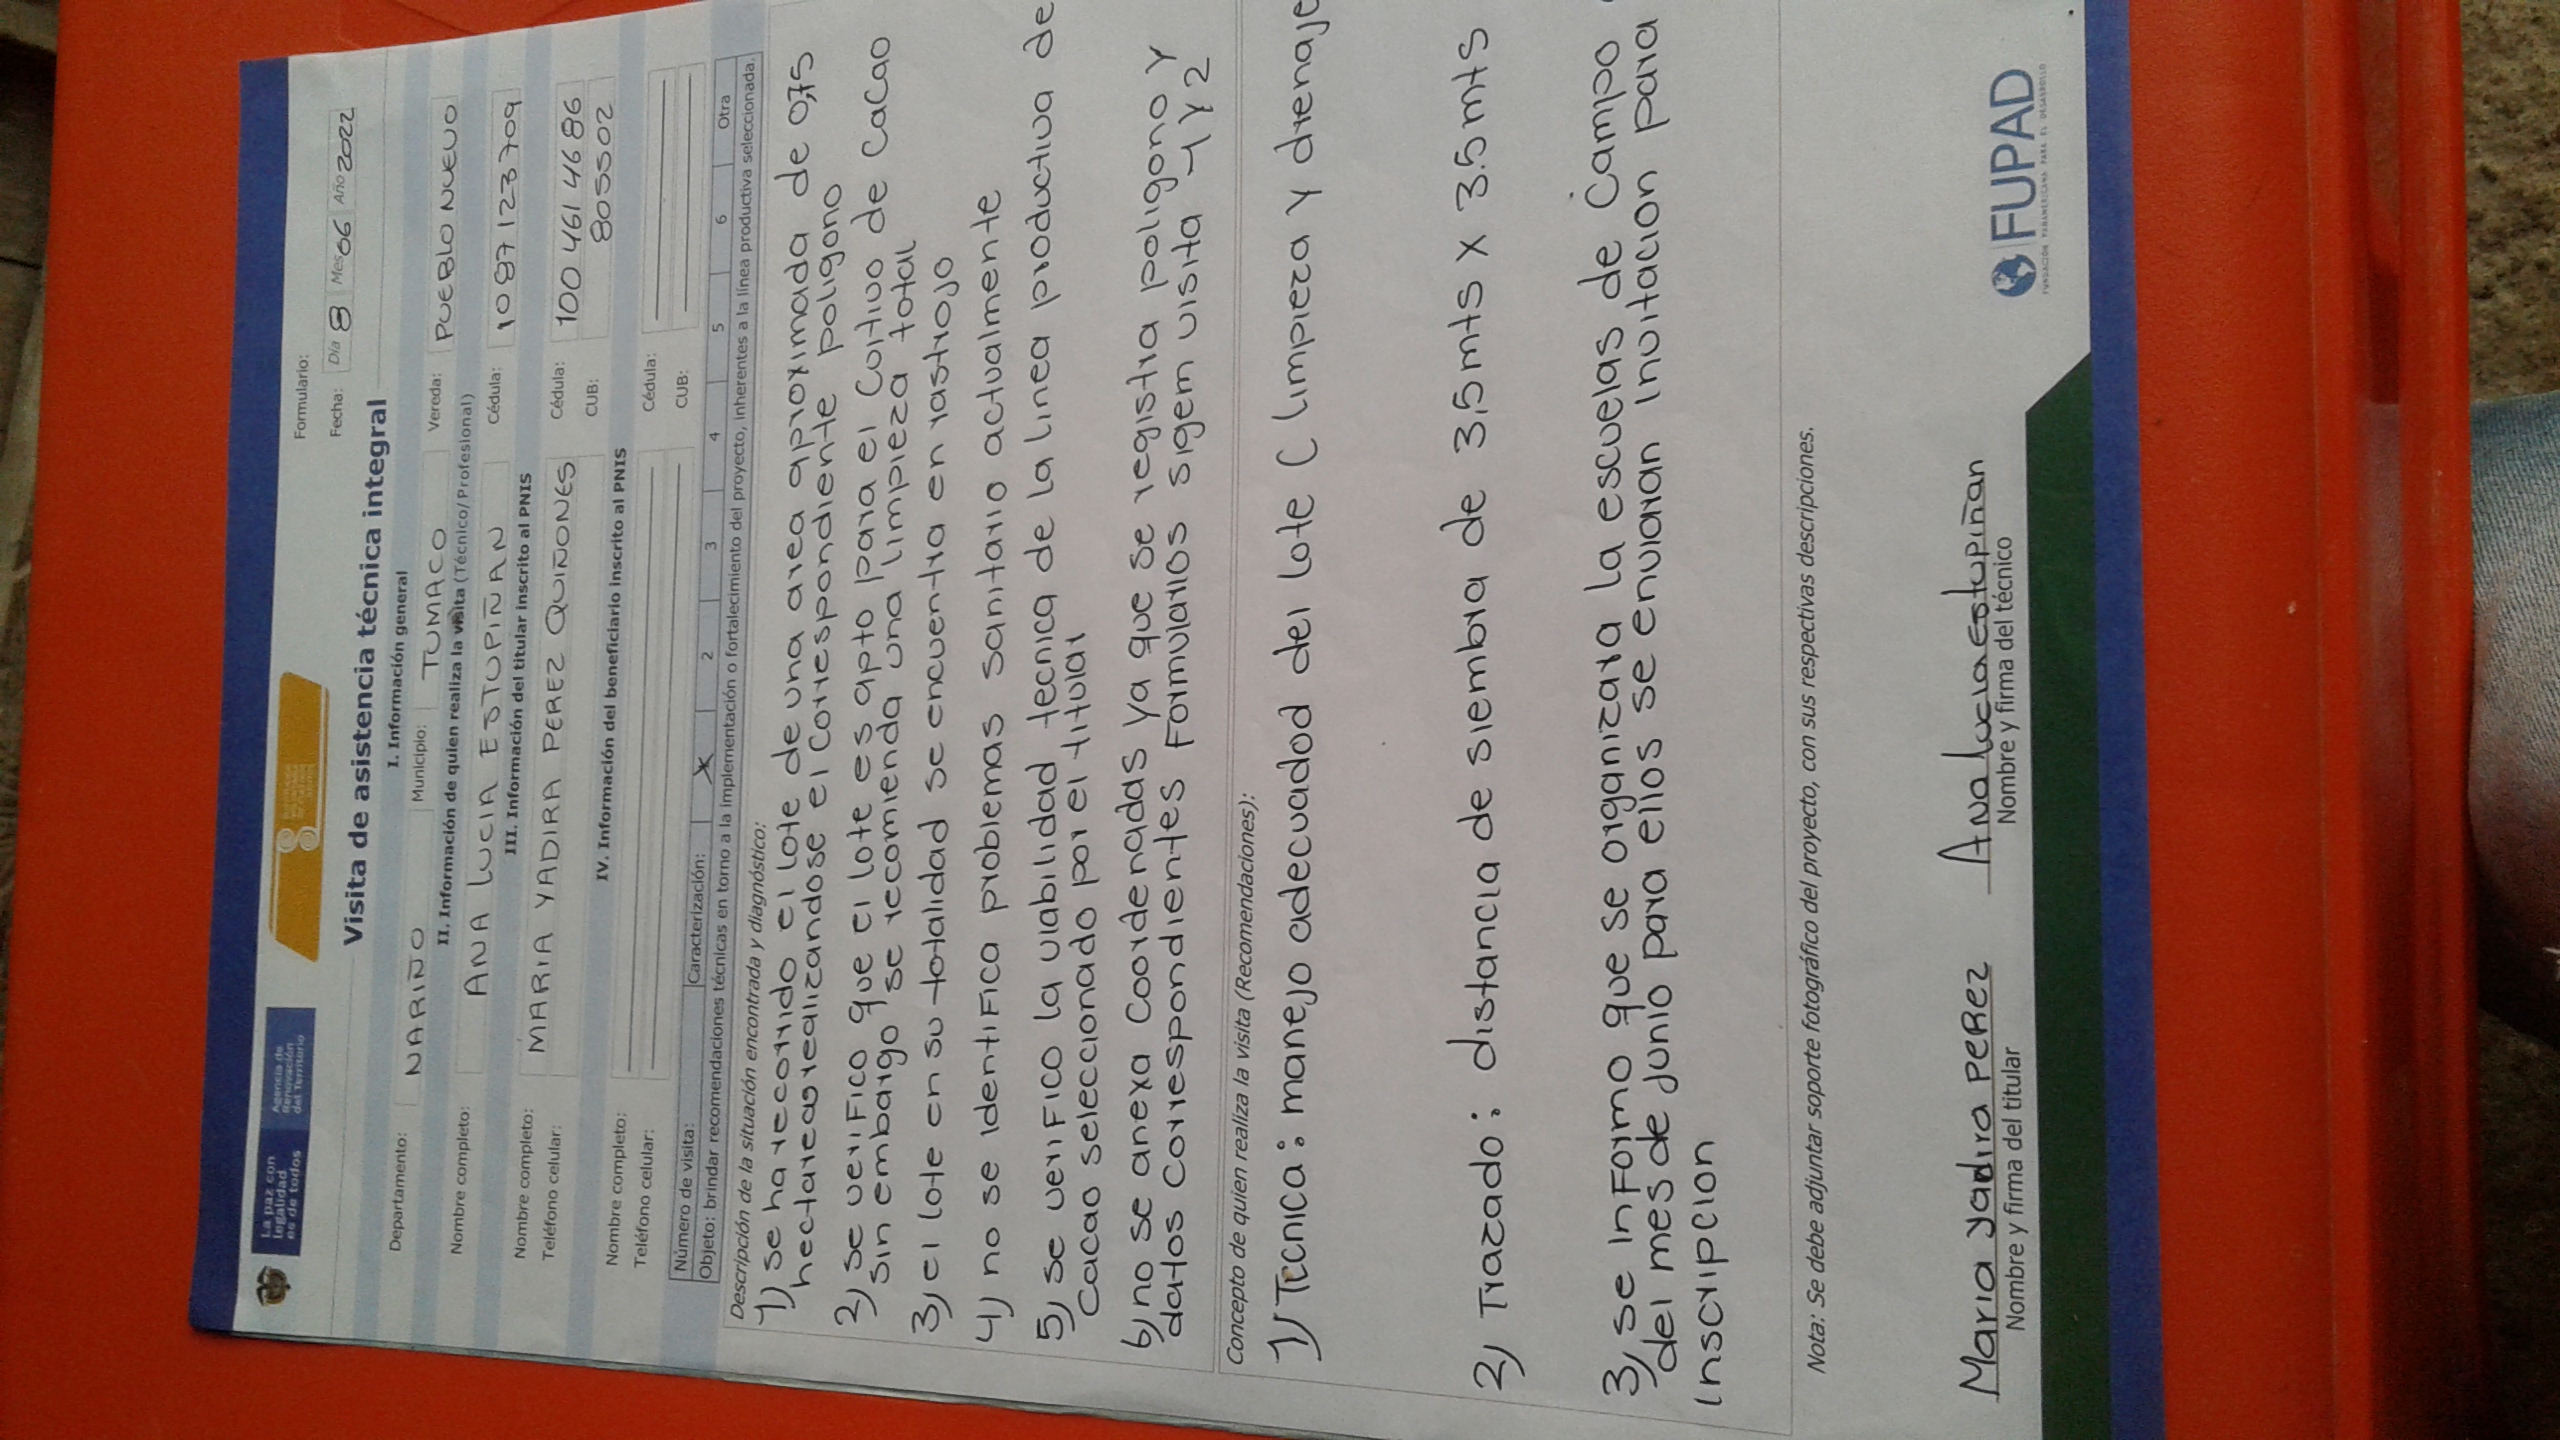 La paz con
legalidad
es de todos
Agencia de
Renovación
del Territorio
Visita de asistencia técnica integral
Formulario:
Fecha: Día 8 Mes 06 Año 2022
I. Información general
Departamento: NARIÑO Municipio: TUMACO Vereda: PUEBLO NUEVO
II. Información de quien realiza la visita (Técnico/Profesional)
Nombre completo: ANA LUCIA ESTUPIÑAN Cédula: 1087123709
III. Información del titular inscrito al PNIS
Nombre completo: MARIA YADIRA PEREZ QUIÑONES Cédula: 100 461 4686
Teléfono celular: CUB: 805502
IV. Información del beneficiario inscrito al PNIS
Nombre completo: Cédula:
Teléfono celular: CUB:
Número de visita: Caracterización: X 2 3 4 5 6 Otra
Objeto: brindar recomendaciones técnicas en torno a la implementación o fortalecimiento del proyecto, inherentes a la línea productiva seleccionada.
Descripción de la situación encontrada y diagnóstico:
1) se ha recorrido el lote de una area aproximada de 0,75
hectareas realizandose el correspondiente poligono
2) se verifico que el lote es apto para el cortivo de cacao
sin embargo se recomienda una limpieza total
3) el lote en su totalidad se encuentra en rastrojo
4) no se identifica problemas sanitario actualmente
5) se verifico la viabilidad tecnica de la linea productiva de
cacao seleccionado por el titular
6) no se anexa coordenadas ya que se registra poligono y
datos correspondientes formularios sigem visita -1 y 2
Concepto de quien realiza la visita (Recomendaciones):
1) Tecnica: manejo adecuadod del lote ( limpieza y drenaje
2) Trazado: distancia de siembra de 3,5 mts x 3.5 mts
3) se informo que se organizara la escuelas de campo
del mes de junio para ellos se enviaran invitacion para
inscripcion
Nota: Se debe adjuntar soporte fotográfico del proyecto, con sus respectivas descripciones.
Maria yadira PEREZ
Nombre y firma del titular
Ana lucia Estupiñan
Nombre y firma del técnico
FUPAD
FUNDACIÓN PANAMERICANA PARA EL DESARROLLO